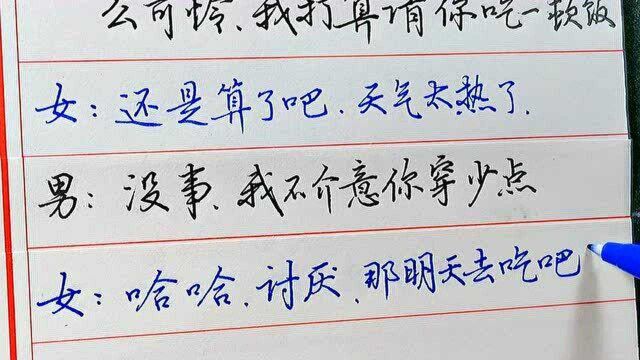 么可怜、我打算请你吃一顿饭
女：还是算了吧、天气太热了.
男：没事、我不介意你穿少点
女：哈哈、讨厌、那明天去吃吧